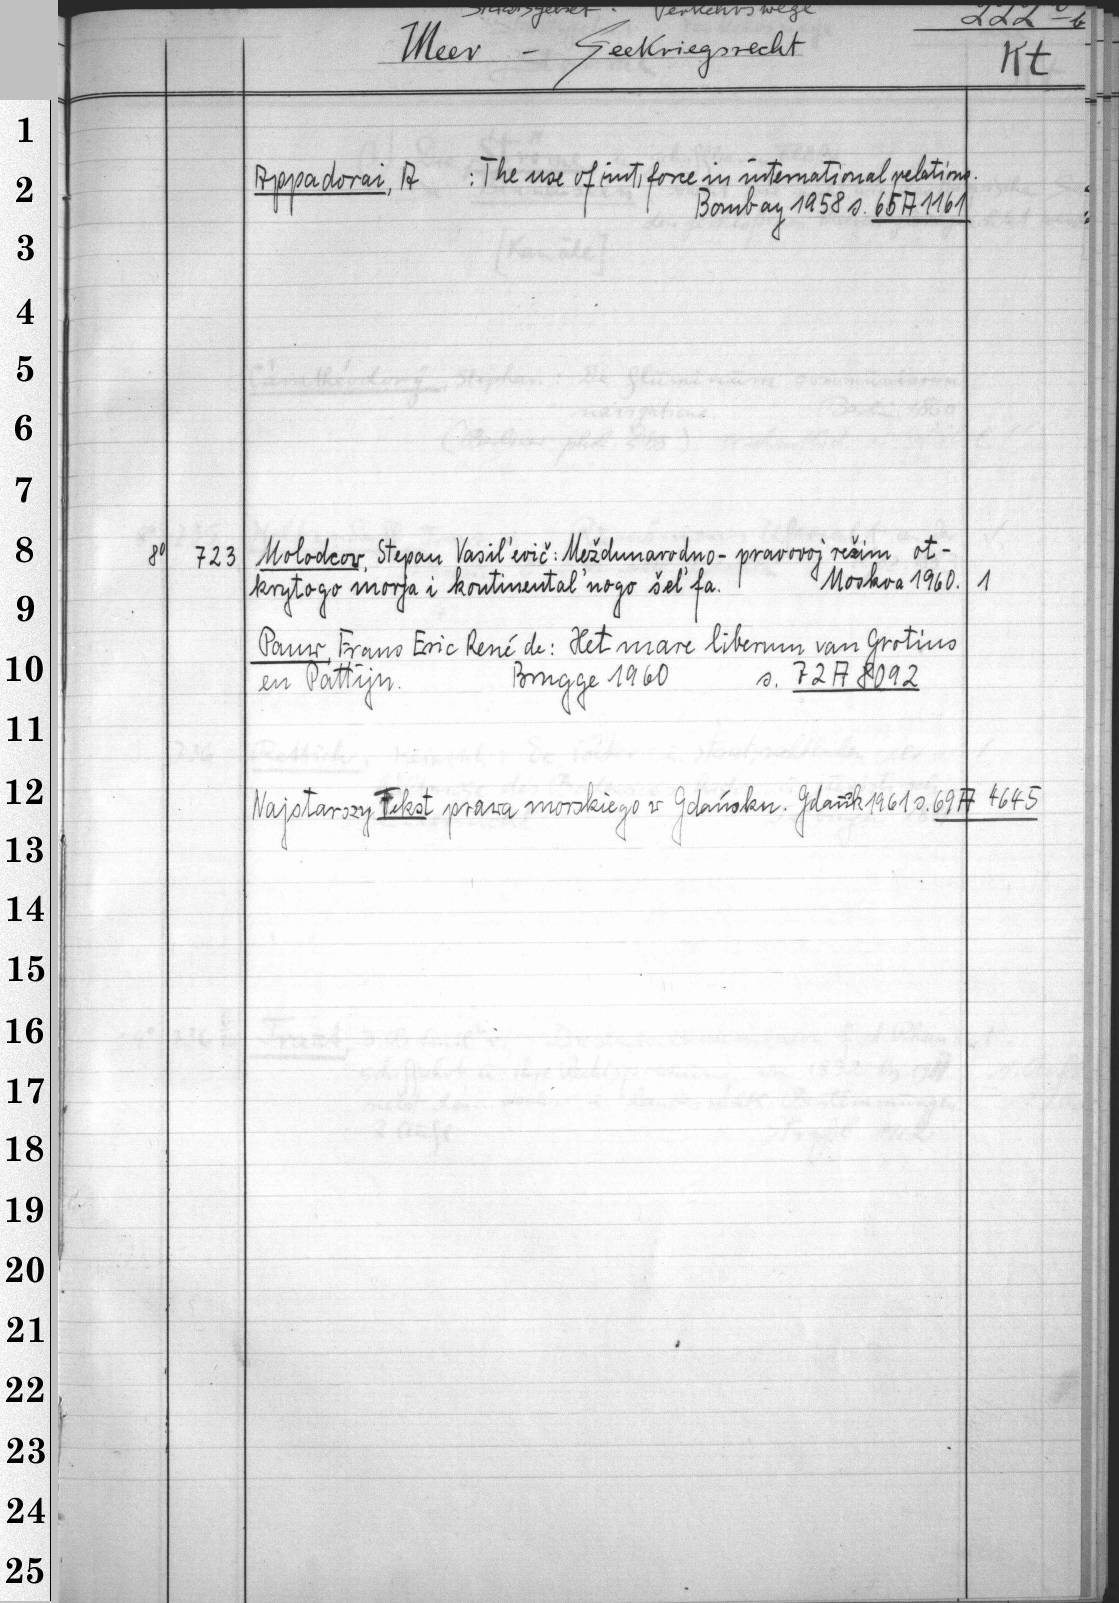 Staatsgebiet. Verkehrswege
222 b
Meer - Seekriegsrecht
Kt
1
2
Appadorai, A : The use of int. force in international relations.
Bombay 1958 s. 65 A 1161
3
[Kanäle]
4
5
6
7
8
8° 723 Molodcov, Stepan Vasil'evič: Meždunarodno-pravovoj režim ot-
krytogo morja i kontinental'nogo šel'fa. Moskva 1960. 1
9
Pauw, Frans Eric René de: Het mare liberum van Grotius
10
en Pattijn. Brugge 1960 s. 72 A 8092
11
12
Najstarszy Tekst prawa morskiego w Gdańsku. Gdańsk 1961 s. 69 A 4645
13
14
15
16
17
18
19
20
21
22
23
24
25